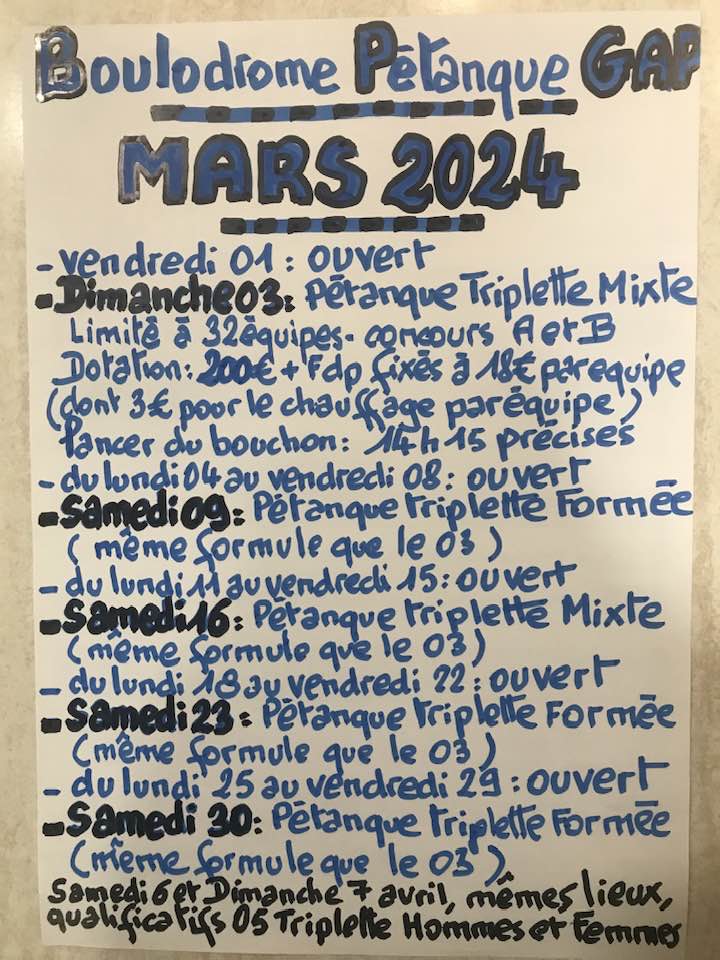 Boulodrome Pétanque GAP
MARS 2024
- vendredi 01 : ouvert
- Dimanche 03 : Pétanque Triplette Mixte
Limité à 32 équipes - concours A et B
Dotation : 200€ + Fdp fixés à 18€ par equipe
(dont 3€ pour le chauffage par équipe)
Lancer du bouchon : 14h15 précises
- du lundi 04 au vendredi 08 : ouvert
- Samedi 09 : Pétanque triplette Formée
(même formule que le 03)
- du lundi 11 au vendredi 15 : ouvert
- Samedi 16 : Pétanque triplette Mixte
(même formule que le 03)
- du lundi 18 au vendredi 22 : ouvert
- Samedi 23 : Pétanque triplette Formée
(même formule que le 03)
- du lundi 25 au vendredi 29 : ouvert
- Samedi 30 : Pétanque triplette Formée
(même formule que le 03)
Samedi 6 et Dimanche 7 avril, mêmes lieux,
qualificatifs 05 Triplette Hommes et Femmes